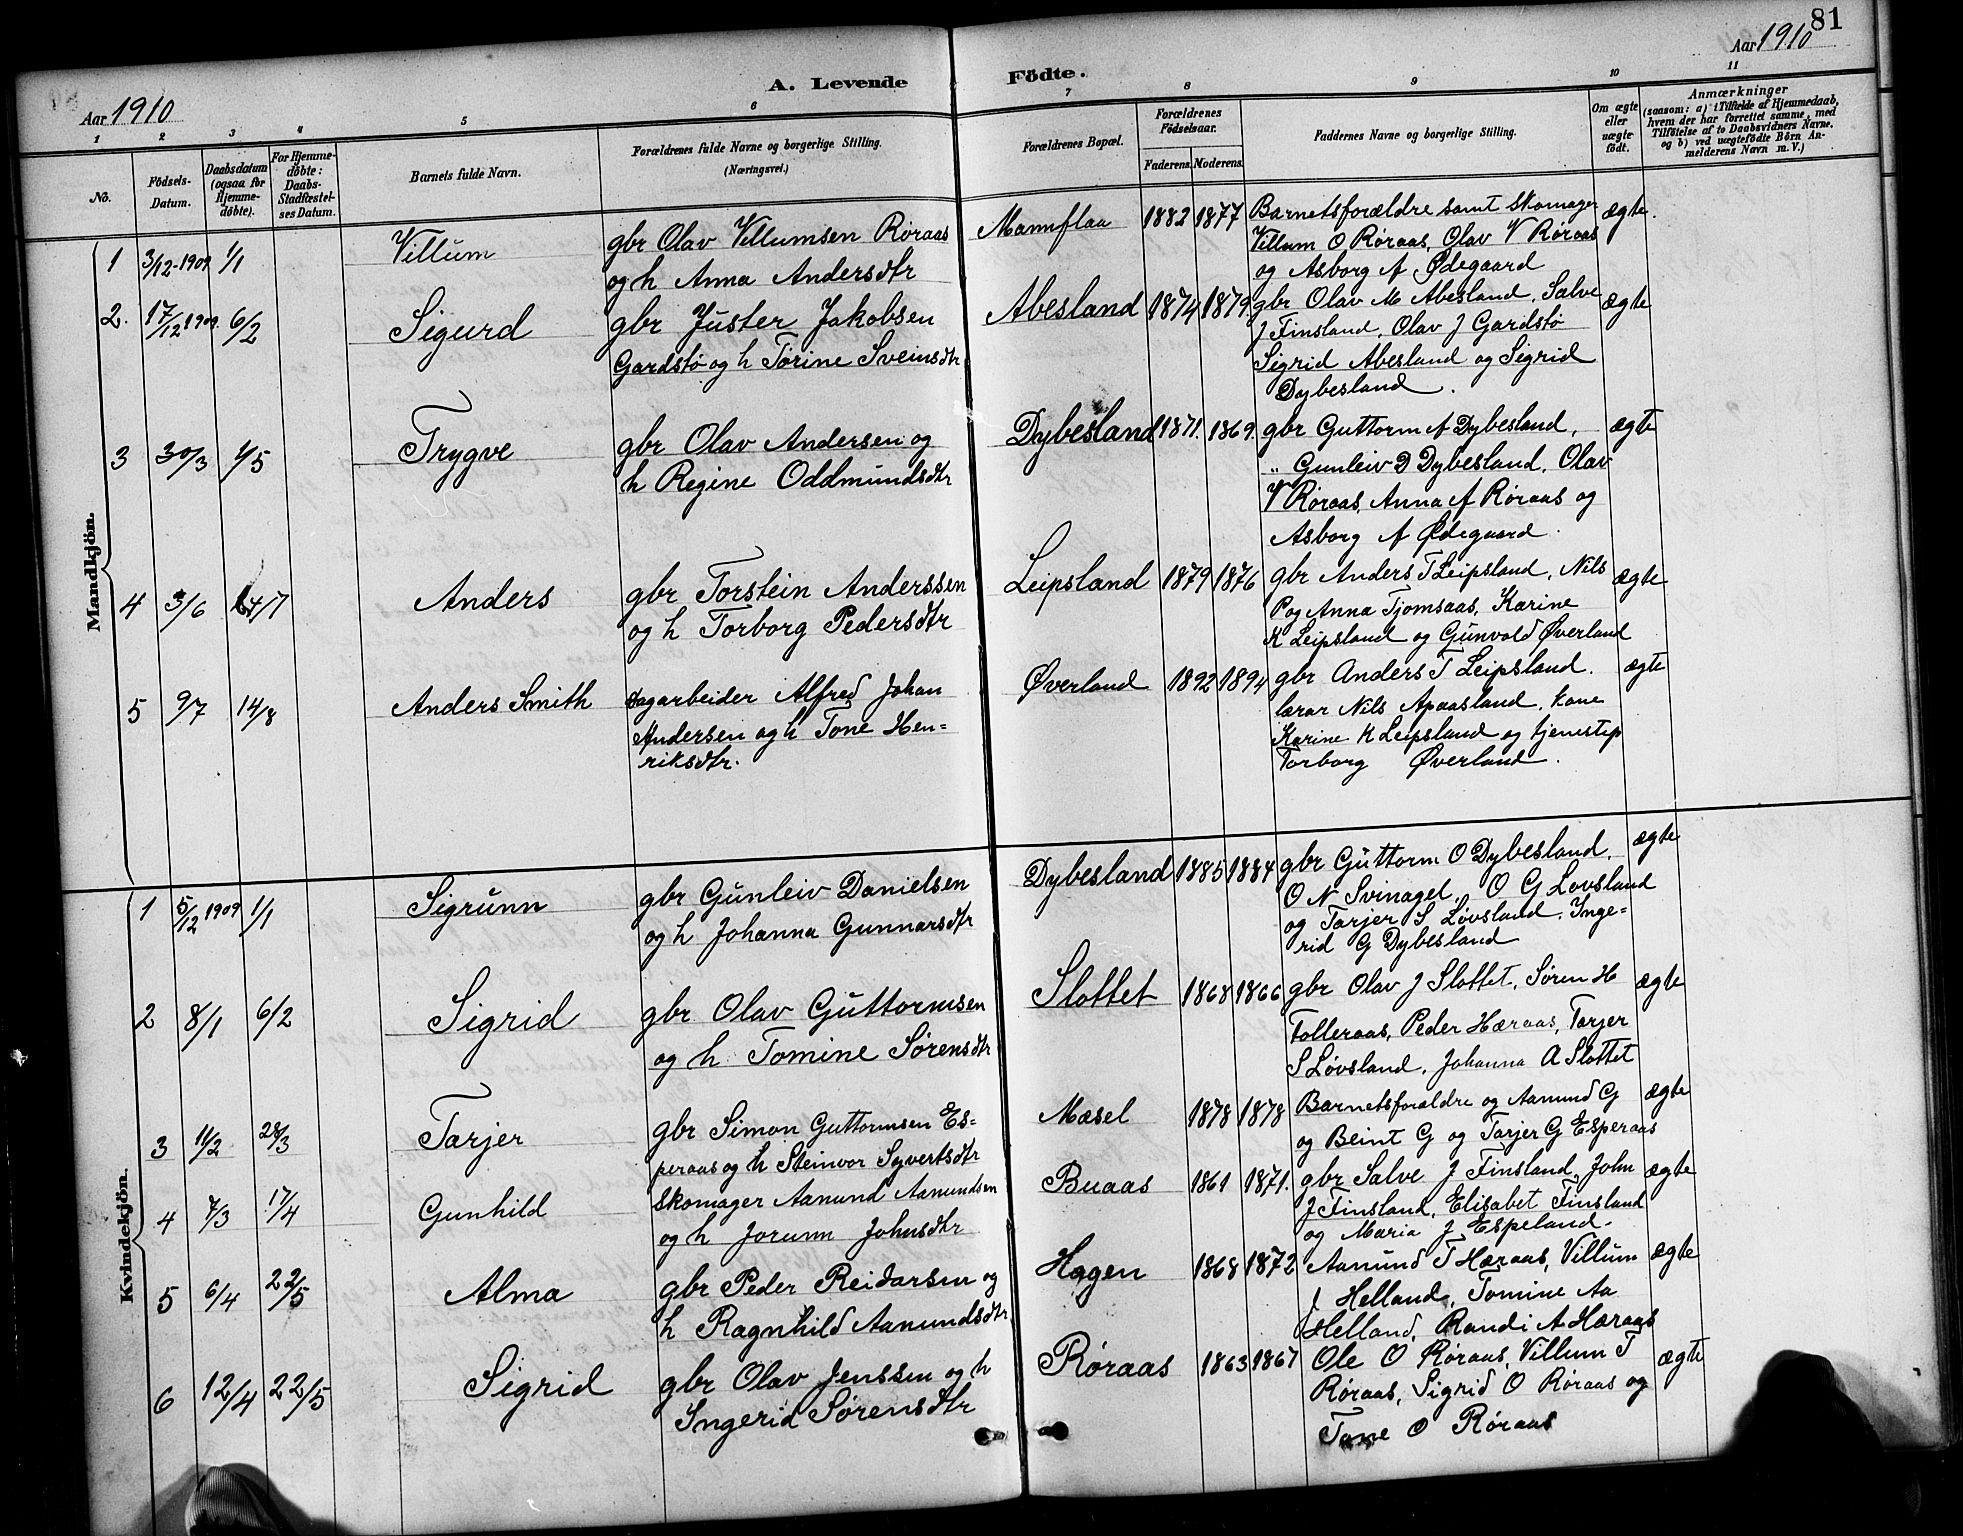 81
Aar 1910
A. Levende
Födte.
Aar 1910
1 2 3 4 5 6 7 8 9 10 11
No.
Födsels-Datum.
Daabsdatum (ogsaa for Hjemme-döbte).
For Hjemme-döbte: Daabs-Stadfæstel-ses Datum.
Barnets fulde Navn.
Forældrenes fulde Navne og borgerlige Stilling.
(Næringsvei.)
Forældrenes Bopæl.
Forældrenes Födselsaar.
Faderens. Moderens.
Faddernes Navne og borgerlige Stilling.
Om ægte eller uægte födt.
Anmærkninger
(saasom: a) i Tilfælde af Hjemmedaab,
hvem der har forrettet samme, med
Tilföielse af to Daabsvidners Navne.
og b) ved uægtefödte Börn An-
melderens Navn m. V.)
Mandkjön.
1 3/12-1909 1/1 Villum gbr Olav Villumsen Røraas Mannflaa 1882 1877 Barnetsforældre samt skomager ægte.
og h Anna Andersdtr Villum O Røraas, Olav V Røraas
og Asborg A Ødegaard
2. 17/12 1909. 6/2 Sigurd gbr Juster Jakobsen Abesland 1874 1879. gbr Olav M Abesland, Salve ægte
Gardstø og h Torine Sveinsdtr J Finsland, Olav J Gardstø
Sigrid Abesland og Sigrid
Dybesland.
3 30/3 1/5 Trygve gbr Olav Andersen og Dybesland 1871. 1869. gbr Guttorm A Dybesland, ægte
h Regine Oddmundsdtr " Gunleiv D Dybesland, Olav
V Røraas, Anna A Røraas og
Asborg A Ødegaard.
4 3/6 /7 Anders gbr Torstein Anderssen Leipsland 1879 1876 gbr Anders T Leipsland, Nils ægte
og h Torborg Pedersdtr P og Anna Tjomsaas, Karine
K Leipsland og Gunvald Øverland
5 9/7 14/8 Anders Smith dagarbeider Alfred Johan Øverland 1892 1894 gbr Anders T Leipsland. ægte
Andersen og h Tone Hen= lærar Nils Apaasland, kone
riksdtr. Karine K Leipsland og tjenestep
Torborg Øverland.
Kvindekjön.
1 5/12 1909 1/1 Sigrunn gbr Gunleiv Danielsen Dybesland 1885 1884 gbr Guttorm O Dybesland, ægte
og h Johanna Gunnarsdtr O N Svinagel, O G Lovsland
og Tarjer S Løvsland. Inge=
rid G Dybesland
2 8/1 6/2 Sigrid gbr Olav Guttormsen Slottet 1868 1866 gbr Olav J Slottet, Søren H ægte
og h Tomine Sørensdtr Tolleraas, Peder Høraas, Tarjer
S Løvsland, Johanna A Slottet
3 11/2 28/3 Tarjer gbr Simon Guttormsen Es= Mæsel 1878 1878 Barnetsforældre og Aamund G ægte
peraas og h Steinvor Syvertsdtr og Beint G og Tarjer G Esperaas
4 7/3 17/4 Gunhild Skomager Aanund Aanundsen Buaas 1861 1871. gbr Salve J Finsland, John ægte
og h Jorunn Johnsdtr J Finsland, Elisabet Finsland
og Maria J Espeland.
5 6/4 22/5 Alma gbr Peder Reidarsen og Hagen 1868 1872 Aanund T Høraas, Villum ægte
h Ragnhild Aanundsdtr J Helland, Tomine Aa
Helland, Randi A Høraas
6 12/4 22/5 Sigrid gbr Olav Jenssen og h Røraas 1863 1867 Ole O Røraas, Villum T ægte
Ingerid Sørensdtr Røraas, Sigrid O Røraas og
Tone O Røraas